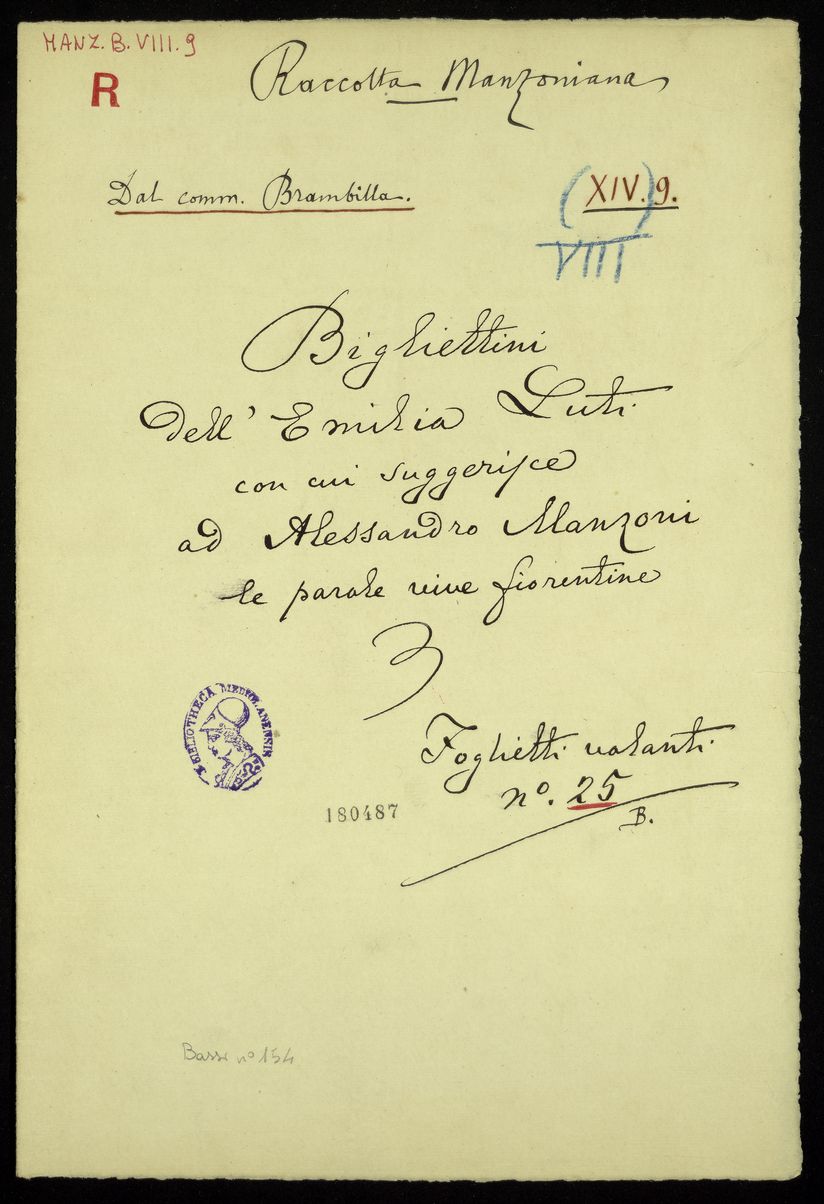 MANZ. B. VIII. 9
R
Raccolta Manzoniana
Dal comm. Brambilla.
(XIV.) 9.
VIII
Bigliettini
dell' Emilia Luti
con cui suggerisce
ad Alessandro Manzoni
le parole vive fiorentine
Foglietti volanti
n°. 25
B.
BIBLIOTHECA MEDIOLANENSIS
180487
Bassi n° 154